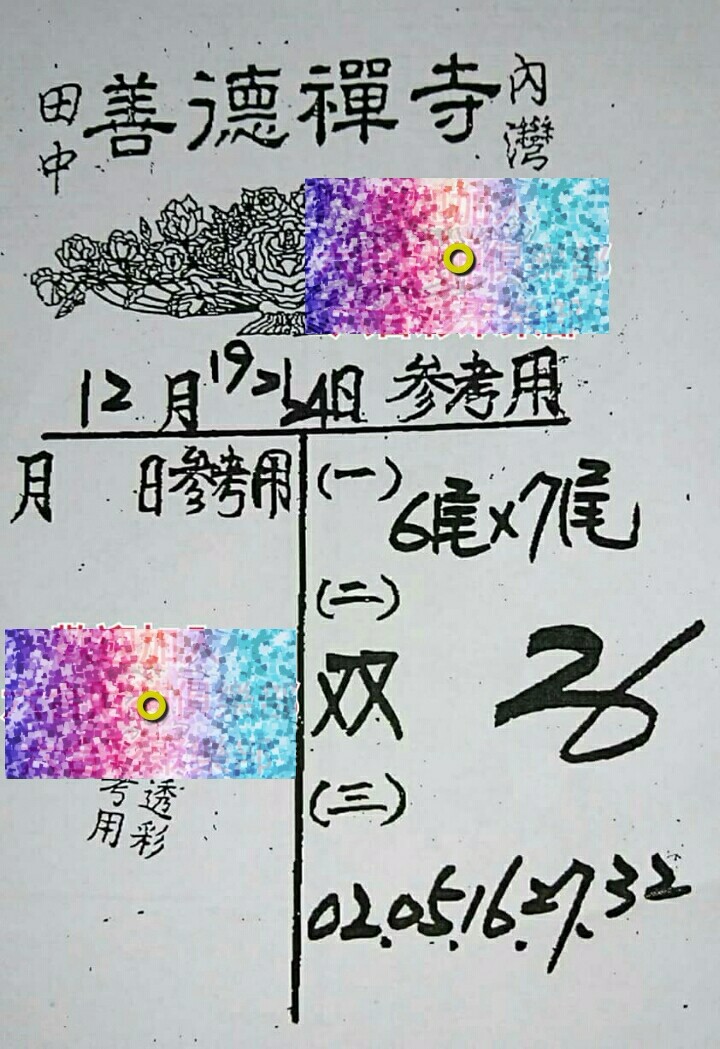 田中 善德禪寺 內灣
12月19至24日 參考用
月 日參考用
(一) 6尾x7尾
(二)
双 26
(三)
02.05.16.27.32
透彩
考用